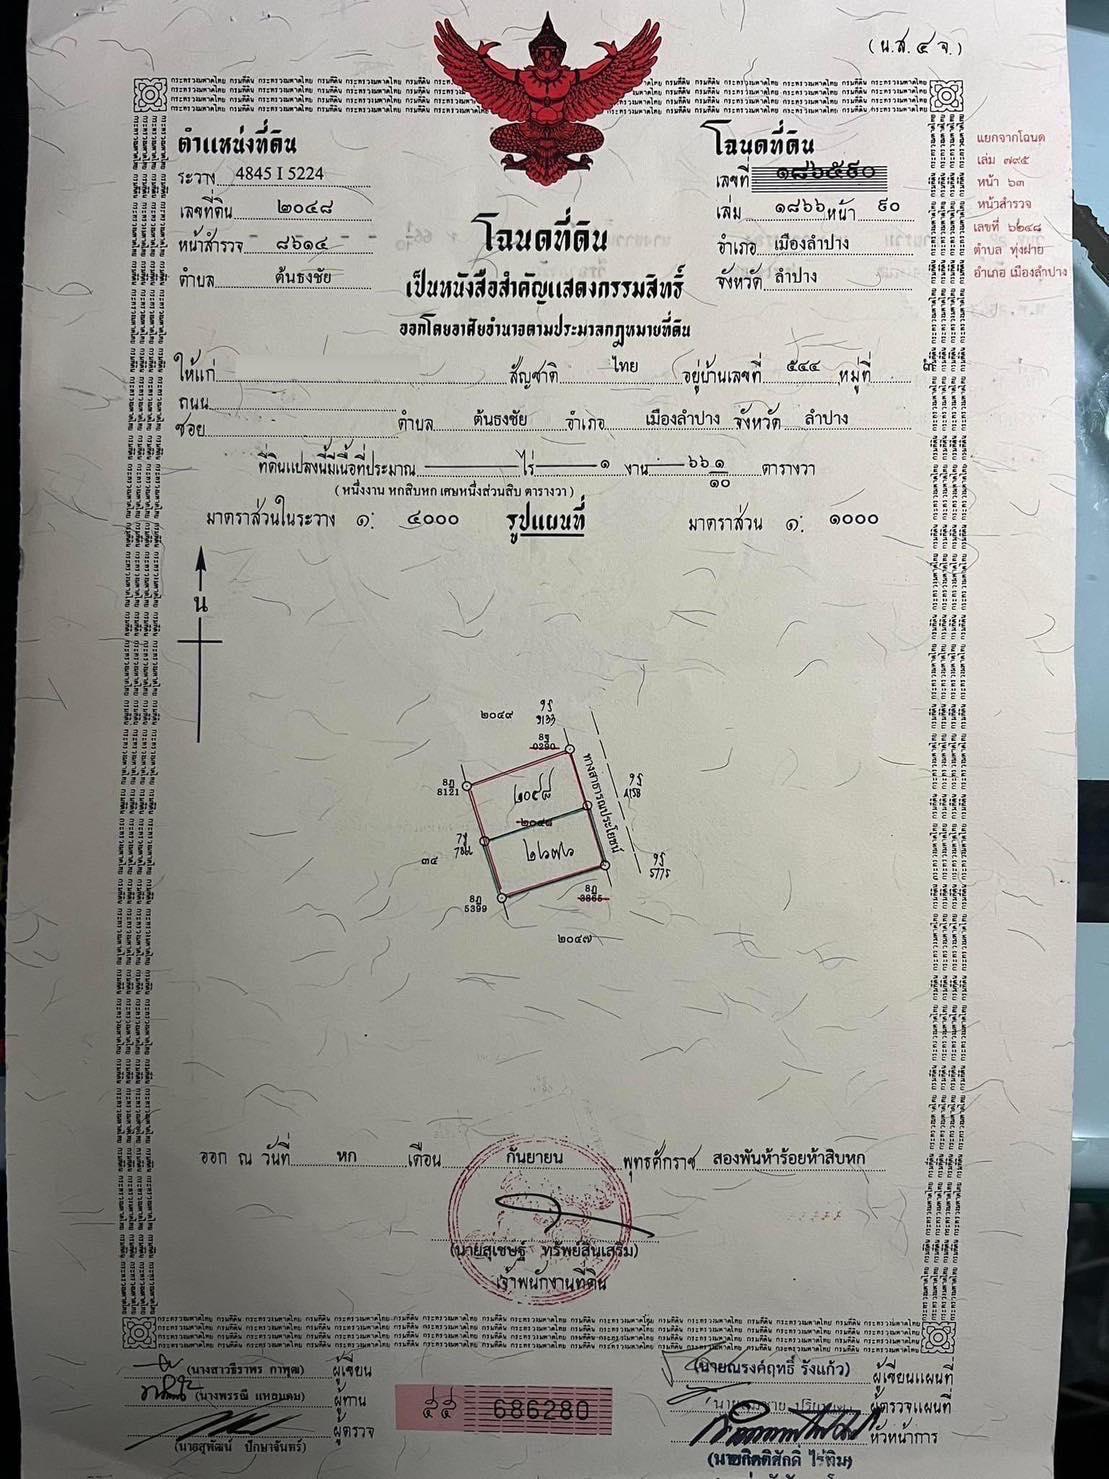 (น.ส. ๔ จ.)
ตำแหน่งที่ดิน
ระวาง 4845 I 5224
เลขที่ดิน ๒๐๔๘
หน้าสำรวจ ๘๖๑๔
ตำบล ต้นธงชัย
โฉนดที่ดิน
เลขที่ ๑๘๖๕๙๐
เล่ม ๑๘๖๖ หน้า ๙๐
อำเภอ เมืองลำปาง
จังหวัด ลำปาง
แยกจากโฉนด
เล่ม ๗๙๕
หน้า ๖๓
หน้าสำรวจ
เลขที่ ๖๒๔๘
ตำบล ทุ่งฝาย
อำเภอ เมืองลำปาง
โฉนดที่ดิน
เป็นหนังสือสำคัญแสดงกรรมสิทธิ์
ออกโดยอาศัยอำนาจตามประมวลกฎหมายที่ดิน
ให้แก่ สัญชาติ ไทย อยู่บ้านเลขที่ ๕๔๔ หมู่ที่
ถนน
ซอย ตำบล ต้นธงชัย อำเภอ เมืองลำปาง จังหวัด ลำปาง
ที่ดินแปลงนี้มีเนื้อที่ประมาณ ไร่ ๑ งาน ๖๖ ๑/๑๐ ตารางวา
(หนึ่งงาน หกสิบหก เศษหนึ่งส่วนสิบ ตารางวา)
มาตราส่วนในระวาง ๑: ๔๐๐๐ รูปแผนที่ มาตราส่วน ๑: ๑๐๐๐
น
๒๐๔๙
8ฐ
0290
8ฎ
8121
๒๐๔๘
ทางสาธารณประโยชน์
๓๔
8ฎ
5399
8ฎ
3865
5775
๒๐๔๗
ออก ณ วันที่ หก เดือน กันยายน พุทธศักราช สองพันห้าร้อยห้าสิบหก
(นายสุเชษฐ์ ทรัพย์สินเสริม)
เจ้าพนักงานที่ดิน
(นางสาวธีราพร กาพุฒ) ผู้เขียน
(นางพรรณี แหลมคม) ผู้ทาน
ผู้ตรวจ
(นายสุพัฒน์ ปักษาจันทร์)
686280
(นายณรงค์ฤทธิ์ รังแก้ว) ผู้เขียนแผนที่
ผู้ตรวจแผนที่
หัวหน้าการ
(นายกิตติศักดิ์ ไร่ทิม)